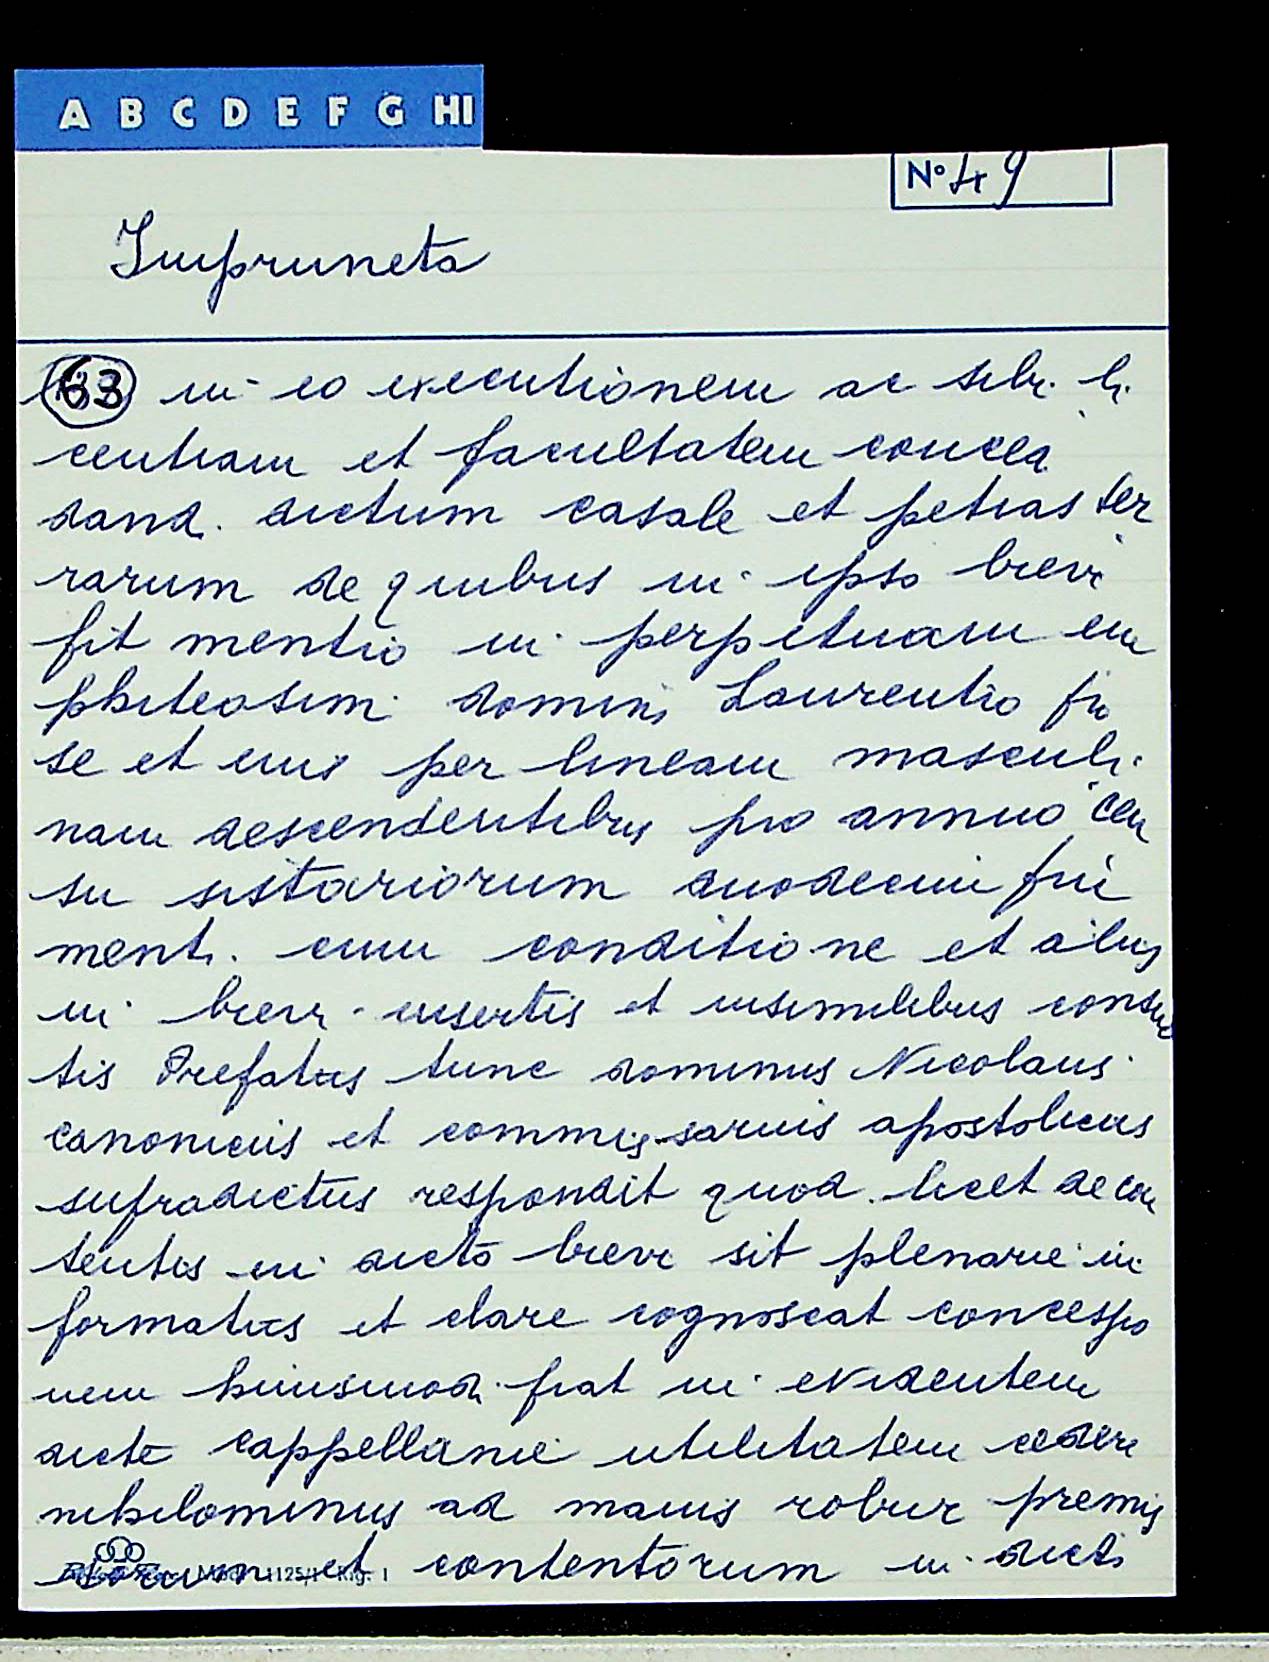 A B C D E F G HI
N° 49
Impruneta
63 in eo executionem ac sibi li
centiam et facultatem conced
dand. dictum casale et petias ter
rarum de quibus in ipso brevi
fit mentio in perpetuam em
phiteosim domini Laurentio pro
se et eius per lineam masculi
nam descendentibus pro annuo cen
su sistariorum duodecim fru
menti. cum conditione et aliis
in brevi insertis et insimilibus consue
tis Prefatus tunc dominus Nicolaus
canonicus et commissarius apostolicus
supradictus respondit quod licet de con
tentis in dicto brevi sit plenarie in
formatus et clare cognoscat concessio
nem huiusmodi fiat in evidentem
dicte cappellanie utilitatem cedere
nihilominus ad maius robur premis
sorum et contentorum in dicto